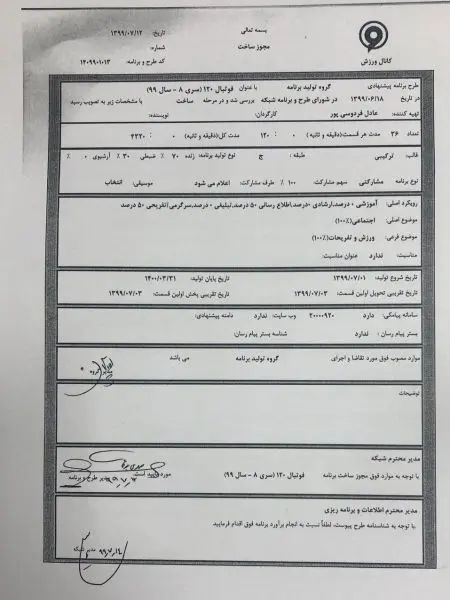 بسمه تعالی
مجوز ساخت
تاریخ: ۱۳۹۹/۰۷/۱۲
شماره:
کد طرح و برنامه: ۱۴۰۹۹۰۱۰۱۳
کانال ورزش
طرح برنامه پیشنهادی گروه تولید برنامه با عنوان فوتبال ۱۲۰ (سری ۸ - سال ۹۹)
در تاریخ ۱۳۹۹/۰۶/۱۸ در شورای طرح و برنامه شبکه بررسی شد و در مرحله ساخت با مشخصات زیر به تصویب رسید
تهیه کننده: عادل فردوسی پور کارگردان: نویسنده:
تعداد ۳۶ مدت هر قسمت(دقیقه و ثانیه) ۰ : ۱۲۰ مدت کل(دقیقه و ثانیه) ۰ : ۴۳۲۰
قالب: ترکیبی طبقه: ج نوع تولید برنامه: زنده ۷۰ ٪ ضبطی ۳۰ ٪ آرشیوی ۰ ٪
نوع برنامه مشارکتی سهم مشارکت: ۱۰۰ ٪ طرف مشارکت: اعلام می شود موسیقی: انتخاب
رویکرد اصلی: آموزشی ۰ درصد،ارشادی ۰درصد،اطلاع رسانی ۵۰ درصد،تبلیغی ۰ درصد،سرگرمی/تفریحی ۵۰ درصد
موضوع اصلی: اجتماعی(۱۰۰٪)
موضوع فرعی: ورزش و تفریحات(۱۰۰٪)
مناسبت: ندارد عنوان مناسبت:
تاریخ شروع تولید: ۱۳۹۹/۰۷/۰۱ تاریخ پایان تولید: ۱۴۰۰/۰۳/۳۱
تاریخ تقریبی تحویل اولین قسمت: ۱۳۹۹/۰۷/۰۳ تاریخ تقریبی پخش اولین قسمت: ۱۳۹۹/۰۷/۰۳
سامانه پیامکی: دارد ۲۰۰۰۰۹۲۰ وب سایت: ندارد دامنه پیشنهادی:
بستر پیام رسان: ندارد شناسه بستر پیام رسان:
موارد مصوب فوق مورد تقاضا و اجرای گروه تولید برنامه می باشد
مدیر گروه
توضیحات
مدیر محترم شبکه
با توجه به موارد فوق مجوز ساخت برنامه فوتبال ۱۲۰ (سری ۸ - سال ۹۹) مورد تایید است.
مدیر طرح و برنامه
مدیر محترم اطلاعات و برنامه ریزی
با توجه به شناسنامه طرح پیوست، لطفاً نسبت به انجام برآورد برنامه فوق اقدام فرمایید.
مدیر شبکه